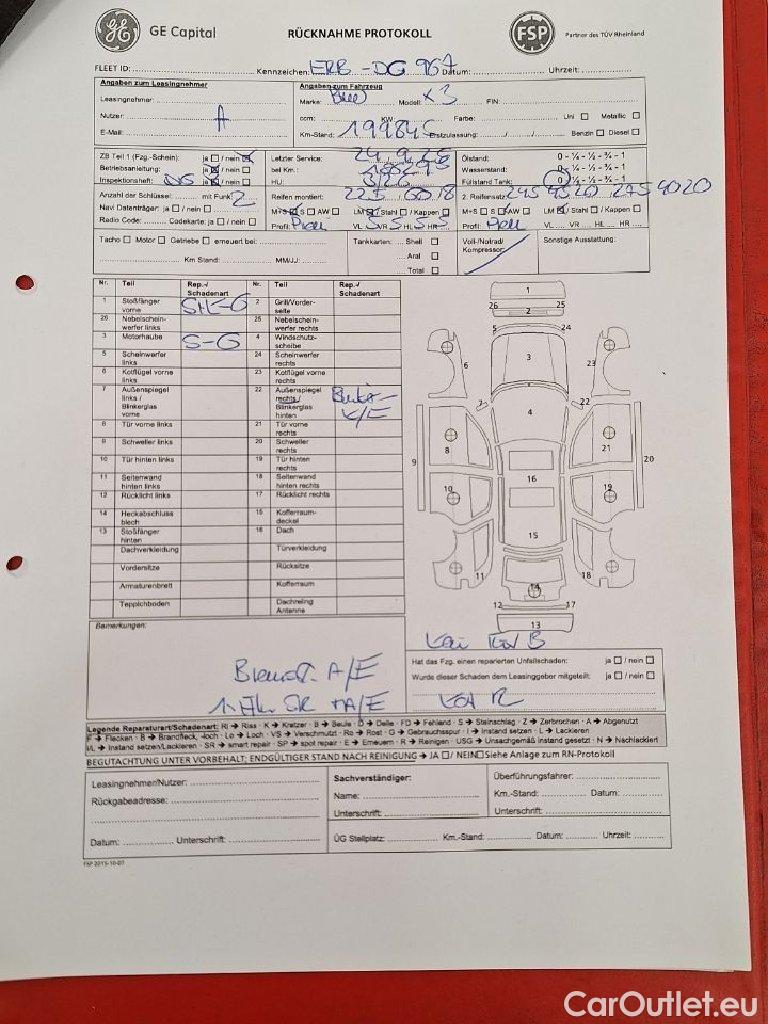 GE Capital
RÜCKNAHME PROTOKOLL
FSP
Partner des TÜV Rheinland
FLEET ID: Kennzeichen: ERB-DG 967 Datum: Uhrzeit:
Angaben zum Leasingnehmer
Leasingnehmer:
Nutzer:
E-Mail:
Angaben zum Fahrzeug
Marke: Modell: X3 FIN:
ccm: KW: Farbe: Uni ☐ Metallic ☐
Km-Stand: 199845 Erstzulassung: Benzin ☐ Diesel ☐
ZB Teil 1 (Fzg.-Schein): ja ☐ / nein ☒
Betriebsanleitung: ja ☒ / nein ☐
Inspektionsheft: ja ☒ / nein ☐
Letzter Service:
bei Km.:
HU:
Ölstand: 0 - ¼ - ½ - ¾ - 1
Wasserstand: 0 - ¼ - ½ - ¾ - 1
Füllstand Tank: 0 - ¼ - ½ - ¾ - 1
Anzahl der Schlüssel: mit Funk: 2
Navi Datenträger: ja ☐ / nein ☐
Radio Code: Codekarte: ja ☐ / nein ☐
Reifen montiert: 225 60 18
M+S ☒ S ☐ AW ☐ LM ☒ / Stahl ☐ / Kappen ☐
Profil: VL 5 VR 5 HL 5 HR 5
2. Reifensatz: 245 45 20 275 40 20
M+S ☐ S ☒ AW ☐ LM ☒ / Stahl ☐ / Kappen ☐
Profil: VL VR HL HR
Tacho ☐ Motor ☐ Getriebe ☐ erneuert bei:
Km Stand: MM/JJ:
Tankkarten: Shell ☐
Aral ☐
Total ☐
Voll-/Notrad/
Kompressor:
Sonstige Ausstattung:
Nr. Teil Rep.-/ Schadenart Nr. Teil Rep.-/ Schadenart
1 Stoßfänger vorne 2 Grill/Vorderseite
26 Nebelscheinwerfer links 25 Nebelscheinwerfer rechts
3 Motorhaube S-G 4 Windschutzscheibe
5 Scheinwerfer links 24 Scheinwerfer rechts
6 Kotflügel vorne links 23 Kotflügel vorne rechts
7 Außenspiegel links / Blinkerglas vorne 22 Außenspiegel rechts / Blinkerglas hinten
8 Tür vorne links 21 Tür vorne rechts
9 Schweller links 20 Schweller rechts
10 Tür hinten links 19 Tür hinten rechts
11 Seitenwand hinten links 18 Seitenwand hinten rechts
12 Rücklicht links 17 Rücklicht rechts
14 Heckabschlussblech 15 Kofferraumdeckel
13 Stoßfänger hinten 16 Dach
Dachverkleidung Türverkleidung
Vordersitze Rücksitze
Armaturenbrett Kofferraum
Teppichboden Dachreling Antenne
1
26 25
2
5 24
3
6 23
7 22
4
8 21
9 20
16
10 19
15
11 18
14
12 17
13
Bemerkungen:
Hat das Fzg. einen reparierten Unfallschaden: ja ☐ / nein ☐
Wurde dieser Schaden dem Leasinggeber mitgeteilt: ja ☐ / nein ☐
Legende Reparaturart/Schadenart: RI → Riss · K → Kratzer · B → Beule · D → Delle · FD → Fehlend · S → Steinschlag · Z → Zerbrochen · A → Abgenutzt
F → Flecken · B → Brandfleck, -loch · Lo → Loch · VS → Verschmutzt · Ro → Rost · G → Gebrauchsspur · I → Instand setzen · L → Lackieren
I/L → Instand setzen/Lackieren · SR → smart repair · SP → spot repair · E → Erneuern · R → Reinigen · USG → Unsachgemäß instand gesetzt · N → Nachlackiert
BEGUTACHTUNG UNTER VORBEHALT; ENDGÜLTIGER STAND NACH REINIGUNG → JA ☐ / NEIN ☐ Siehe Anlage zum RN-Protokoll
Leasingnehmer/Nutzer:
Rückgabeadresse:
Datum: Unterschrift:
Sachverständiger:
Name:
Unterschrift:
Überführungsfahrer:
Km.-Stand: Datum:
Unterschrift:
ÜG Stellplatz: Km.-Stand: Datum: Uhrzeit:
CarOutlet.eu